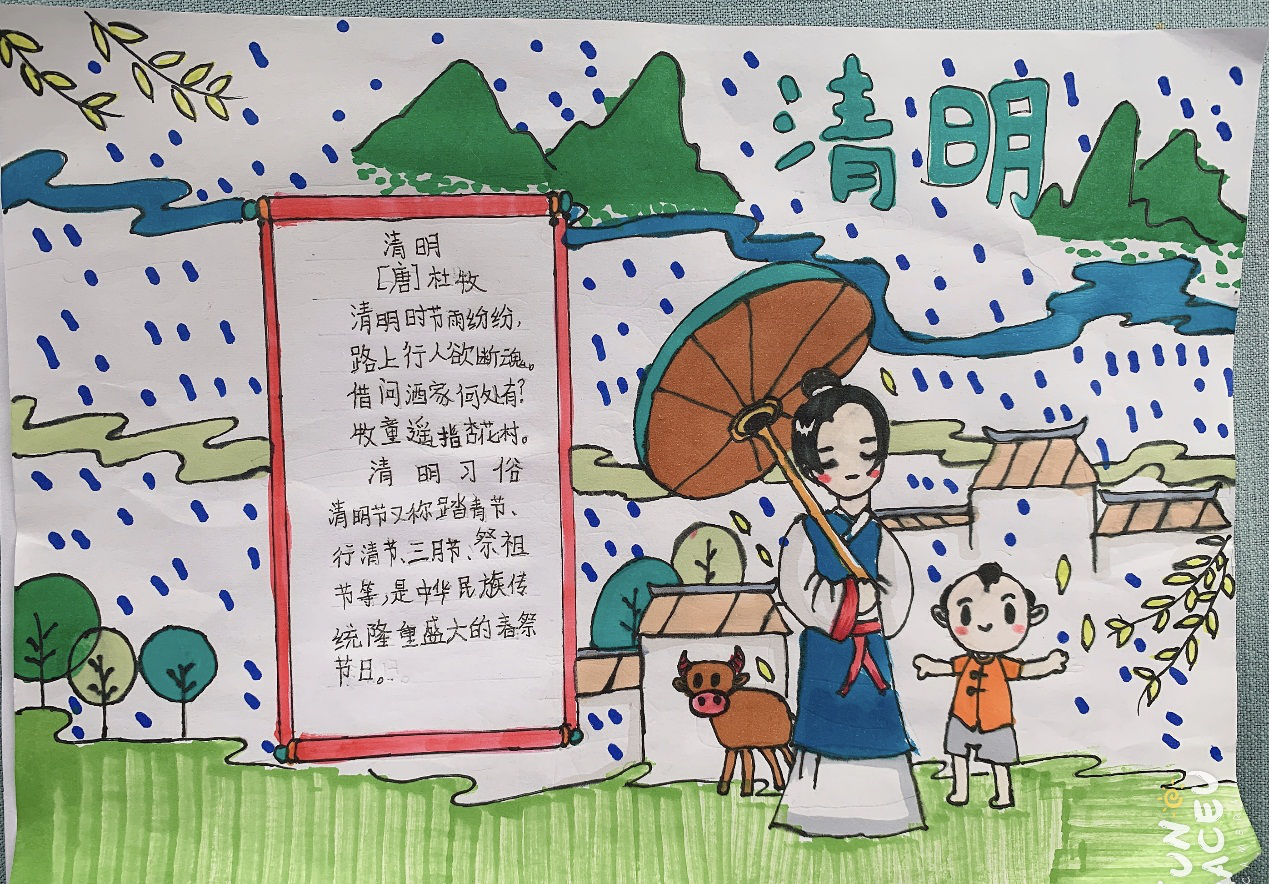 清明
清明
[唐]杜牧
清明时节雨纷纷，
路上行人欲断魂。
借问酒家何处有？
牧童遥指杏花村。
清明习俗
清明节又称踏青节、
行清节、三月节、祭祖
节等，是中华民族传
统隆重盛大的春祭
节日。